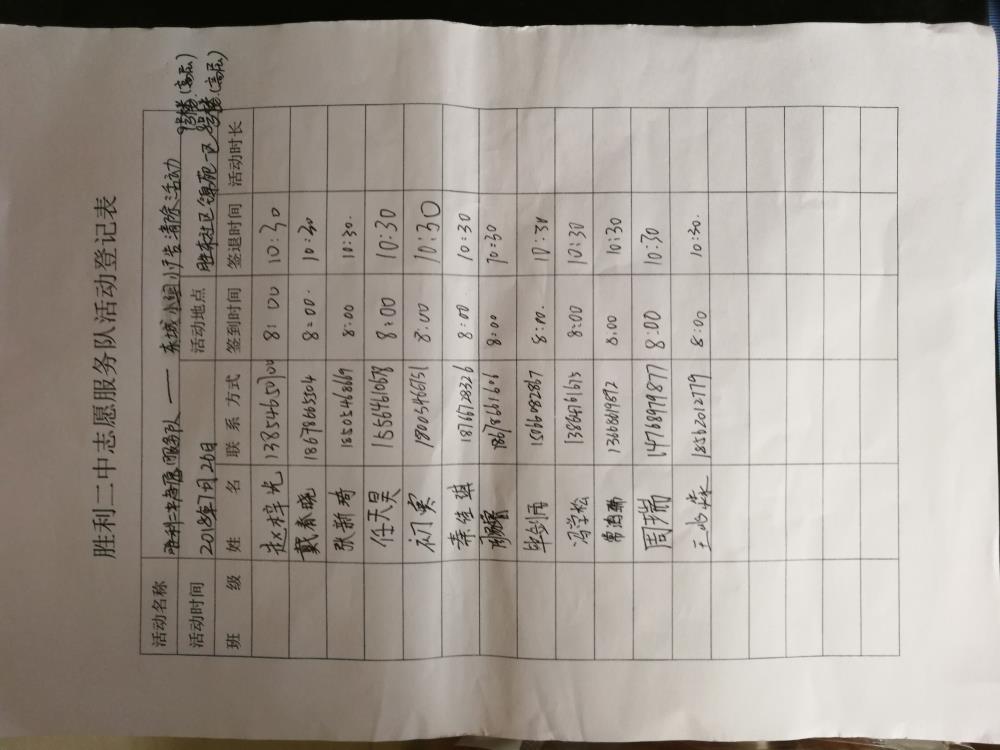 胜利二中志愿服务队活动登记表
活动名称 胜利二中志愿服务队——东城小组小广告清除活动
9号楼(高层)
活动时间 2018年7月20日 活动地点 胜东社区锦苑一区 8号楼(高层)
班 级 姓 名 联 系 方式 签到时间 签退时间 活动时长
赵梓光 13854650100 8:00 10:30
戴春晓 18678665504 8:00. 10:30
张新琦 18505468669 8:00 10:30.
任天昊 15564610678 8:00 10:30
初寅 18005466151 8:00 10:30
秦佳琪 18766728326 8:00 10:30
18678661606 8:00 10:30
毕剑雨 1506082867 8:00. 10:30
冯学松 13864761675 8:00 10:30
13668619872 8:00 10:30
周瑞 14768979877 8:00 10:30
王 森 18562012779 8:00 10:30.